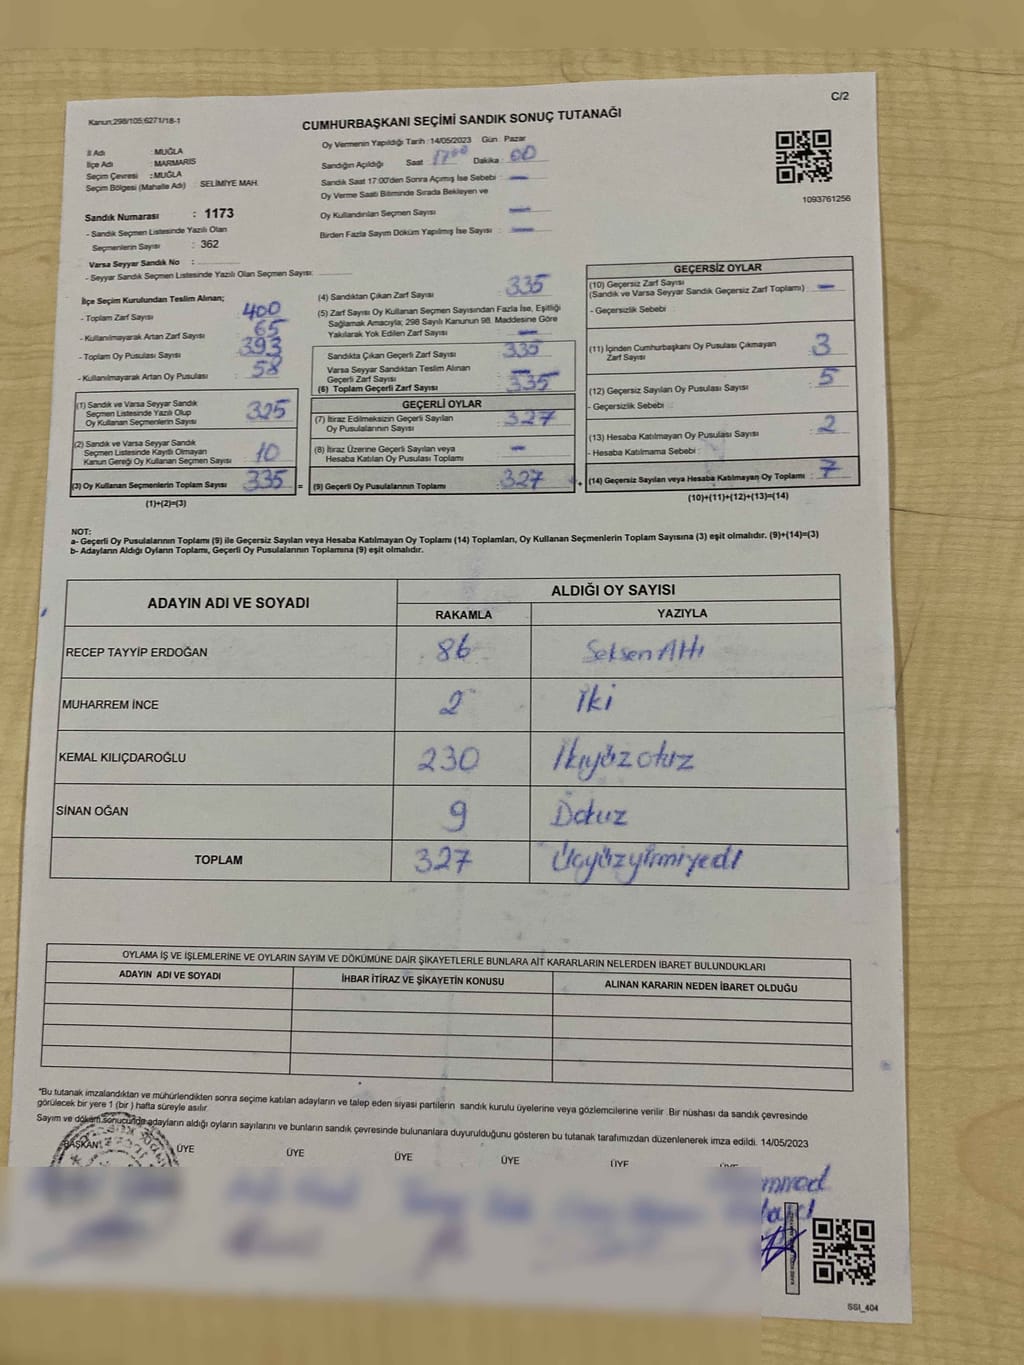 C/2
Kanun:298/105;6271/18-1
CUMHURBAŞKANI SEÇİMİ SANDIK SONUÇ TUTANAĞI
İl Adı : MUĞLA
İlçe Adı : MARMARİS
Seçim Çevresi : MUĞLA
Seçim Bölgesi (Mahalle Adı) : SELİMİYE MAH.
Sandık Numarası : 1173
- Sandık Seçmen Listesinde Yazılı Olan
Seçmenlerin Sayısı : 362
Varsa Seyyar Sandık No :
- Seyyar Sandık Seçmen Listesinde Yazılı Olan Seçmen Sayısı:
Oy Vermenin Yapıldığı Tarih : 14/05/2023 Gün : Pazar
Sandığın Açıldığı Saat 17:00 Dakika : 00
Sandık Saat 17:00'den Sonra Açımış İse Sebebi : —
Oy Verme Saati Bitiminde Sırada Bekleyen ve
Oy Kullandırılan Seçmen Sayısı : —
Birden Fazla Sayım Döküm Yapılmış İse Sayısı : —
1093761256
İlçe Seçim Kurulundan Teslim Alınan;
- Toplam Zarf Sayısı : 400
- Kullanılmayarak Artan Zarf Sayısı : 65
- Toplam Oy Pusulası Sayısı : 393
- Kullanılmayarak Artan Oy Pusulası : 58
(1) Sandık ve Varsa Seyyar Sandık
Seçmen Listesinde Yazılı Olup
Oy Kullanan Seçmenlerin Sayısı : 325
(2) Sandık ve Varsa Seyyar Sandık
Seçmen Listesinde Kayıtlı Olmayan
Kanun Gereği Oy Kullanan Seçmen Sayısı : 10
(3) Oy Kullanan Seçmenlerin Toplam Sayısı : 335 =
(1)+(2)=(3)
(4) Sandıktan Çıkan Zarf Sayısı : 335
(5) Zarf Sayısı Oy Kullanan Seçmen Sayısından Fazla İse, Eşitliği
Sağlamak Amacıyla; 298 Sayılı Kanunun 98. Maddesine Göre
Yakılarak Yok Edilen Zarf Sayısı : —
Sandıkta Çıkan Geçerli Zarf Sayısı : 335
Varsa Seyyar Sandıktan Teslim Alınan
Geçerli Zarf Sayısı : —
(6) Toplam Geçerli Zarf Sayısı : 335
GEÇERLİ OYLAR
(7) İtiraz Edilmeksizin Geçerli Sayılan
Oy Pusulalarının Sayısı : 327
(8) İtiraz Üzerine Geçerli Sayılan veya
Hesaba Katılan Oy Pusulası Toplamı : —
(9) Geçerli Oy Pusulalarının Toplamı : 327 +
GEÇERSİZ OYLAR
(10) Geçersiz Zarf Sayısı
(Sandık ve Varsa Seyyar Sandık Geçersiz Zarf Toplamı) : —
- Geçersizlik Sebebi :
(11) İçinden Cumhurbaşkanı Oy Pusulası Çıkmayan
Zarf Sayısı : 3
(12) Geçersiz Sayılan Oy Pusulası Sayısı : 5
- Geçersizlik Sebebi :
(13) Hesaba Katılmayan Oy Pusulası Sayısı : 2
- Hesaba Katılmama Sebebi :
(14) Geçersiz Sayılan veya Hesaba Katılmayan Oy Toplamı : 7
(10)+(11)+(12)+(13)=(14)
NOT:
a- Geçerli Oy Pusulalarının Toplamı (9) ile Geçersiz Sayılan veya Hesaba Katılmayan Oy Toplamı (14) Toplamları, Oy Kullanan Seçmenlerin Toplam Sayısına (3) eşit olmalıdır. (9)+(14)=(3)
b- Adayların Aldığı Oyların Toplamı, Geçerli Oy Pusulalarının Toplamına (9) eşit olmalıdır.
ADAYIN ADI VE SOYADI
ALDIĞI OY SAYISI
RAKAMLA YAZIYLA
RECEP TAYYİP ERDOĞAN 86 Seksen Altı
MUHARREM İNCE 2 İki
KEMAL KILIÇDAROĞLU 230 İkiyüz otuz
SİNAN OĞAN 9 Dokuz
TOPLAM 327 Üçyüzyirmiyedi
OYLAMA İŞ VE İŞLEMLERİNE VE OYLARIN SAYIM VE DÖKÜMÜNE DAİR ŞİKAYETLERLE BUNLARA AİT KARARLARIN NELERDEN İBARET BULUNDUKLARI
ADAYIN ADI VE SOYADI İHBAR İTİRAZ VE ŞİKAYETİN KONUSU ALINAN KARARIN NEDEN İBARET OLDUĞU
*Bu tutanak imzalandıktan ve mühürlendikten sonra seçime katılan adayların ve talep eden siyasi partilerin sandık kurulu üyelerine veya gözlemcilerine verilir. Bir nüshası da sandık çevresinde
görülecek bir yere 1 (bir) hafta süreyle asılır.
Sayım ve döküm sonucunda adayların aldığı oyların sayılarını ve bunların sandık çevresinde bulunanlara duyurulduğunu gösteren bu tutanak tarafımızdan düzenlenerek imza edildi. 14/05/2023
BAŞKAN ÜYE ÜYE ÜYE ÜYE ÜYE ÜYE
SSI_404